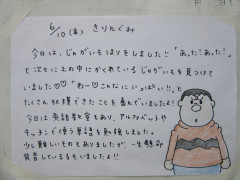 6/10(金) きりんぐみ
今日は、じゃがいもほりをしました!!「あった!あった!」
と次々に土の中にかくれているじゃがいもを見つけて
いました♡♡「わー♡こんなにいっぱい!!」と
たくさん収穫できたことを喜んでいましたよ!
今日は英語教室もあり、アルファベットや
キッチンで使う単語を勉強しました。
少し難しいものもありましたが、一生懸命
発音しているきりんぐみでしたよ!!